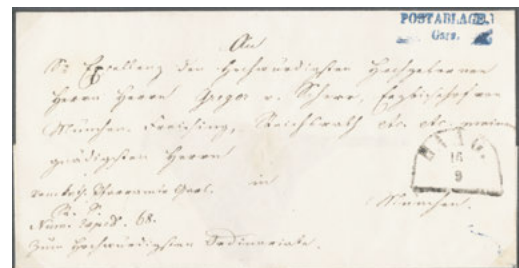 POSTABLAGE
Gars.
An
Sr Excellenz den hochwürdigsten Hochgebornen
Herrn Herrn Gregor v. Scherr, Erzbischof von
München Freising, Reichsrath etc. etc. meinen
gnädigsten Herrn
HAAG.
16
9
vom kath. Pfarramte Gars.
in
München.
Num. 68.
Zum hochwürdigsten Ordinariate.